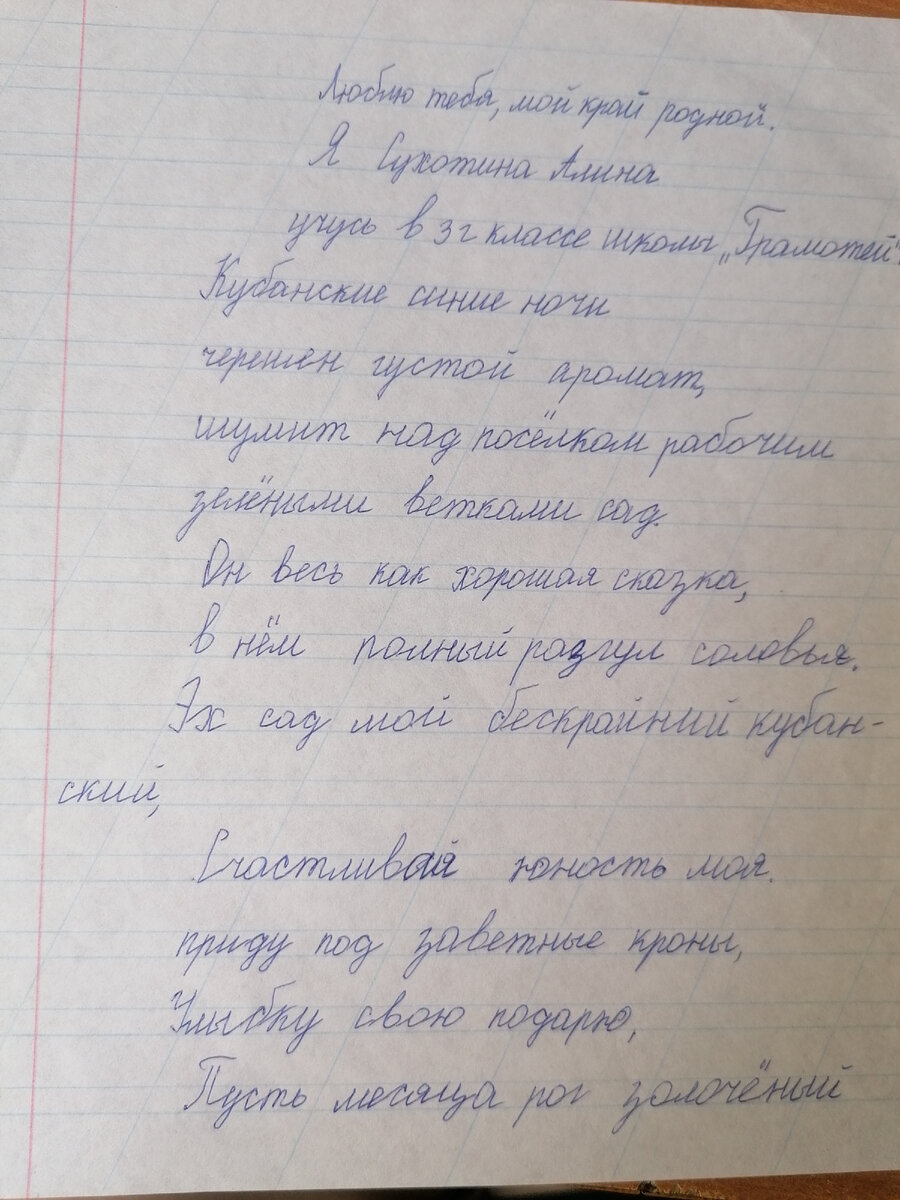 Люблю тебя, мой край родной.
Я Сухотина Алина
учусь в 3г классе школы „Грамотей".
Кубанские синие ночи
черешен густой аромат,
шумит над посёлком рабочим
зелёными ветками сад.
Он весь как хорошая сказка,
в нём полный разгул соловья.
Эх сад мой бескрайний кубан-
ский,
Счастливая юность моя.
приду под заветные кроны,
Улыбку свою подарю,
Пусть месяца рог золочёный